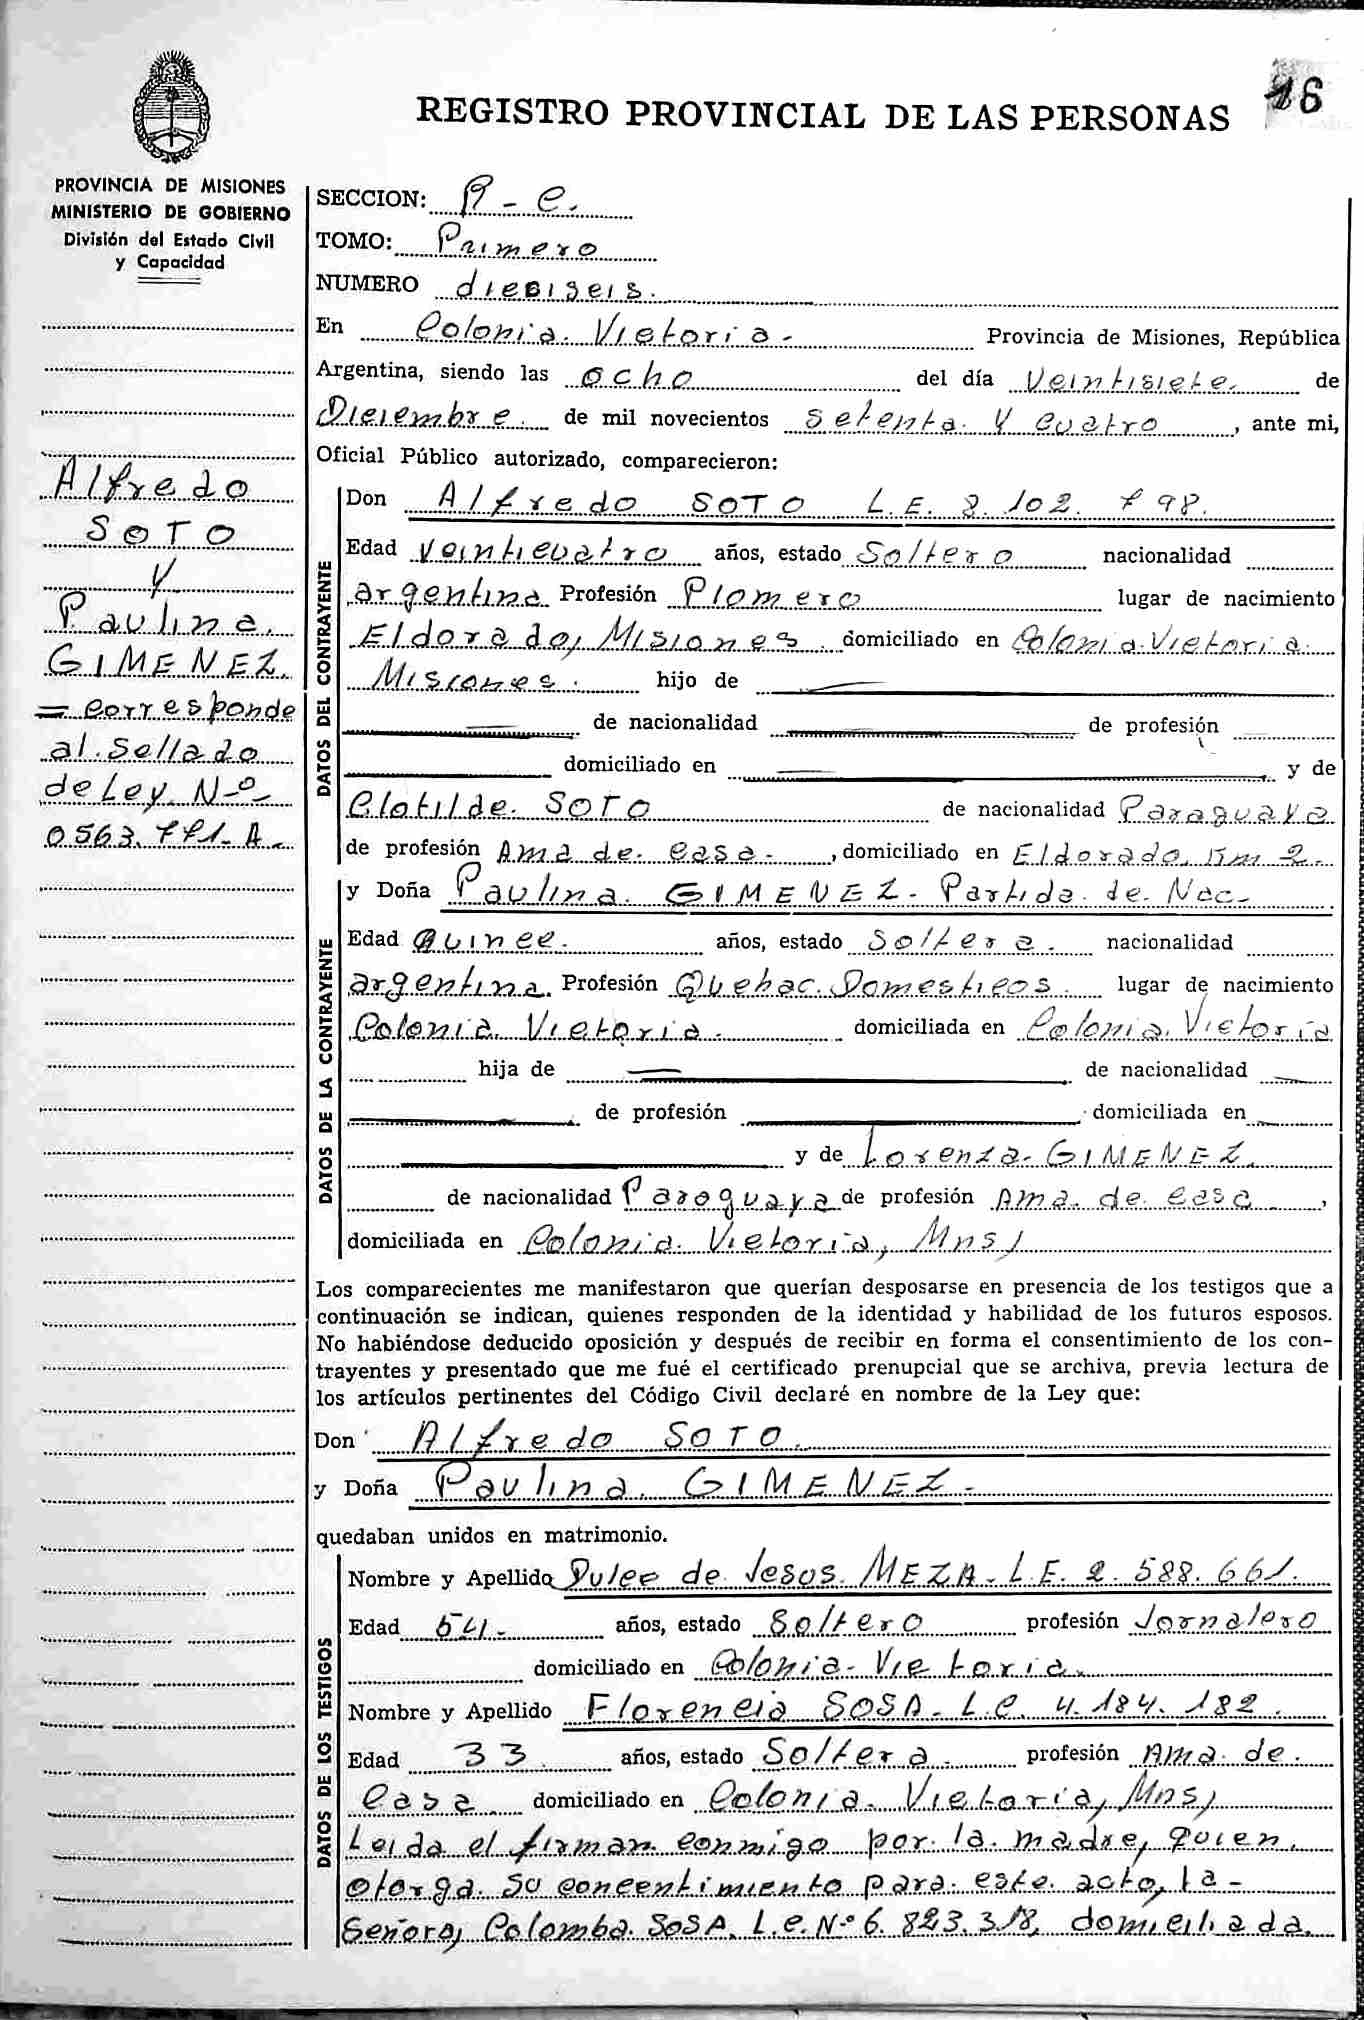 REGISTRO PROVINCIAL DE LAS PERSONAS 16
PROVINCIA DE MISIONES
MINISTERIO DE GOBIERNO
División del Estado Civil
y Capacidad
Alfredo
SOTO
y
Paulina.
GIMENEZ.
= corresponde
al. Sellado
de Ley. Nº
0563.771-A.
SECCION: P - e.
TOMO: Primero
NUMERO dieciseis.
En Colonia. Victoria - Provincia de Misiones, República
Argentina, siendo las ocho del día Veintisiete. de
Diciembre. de mil novecientos setenta y cuatro, ante mi,
Oficial Público autorizado, comparecieron:
DATOS DEL CONTRAYENTE
Don Alfredo SOTO L.E. 8.102.798.
Edad Veinticuatro años, estado Soltero nacionalidad
argentina Profesión Plomero lugar de nacimiento
Eldorado, Misiones. domiciliado en Colonia. Victoria.
Misiones. hijo de —
— de nacionalidad — de profesión
— domiciliado en — y de
Clotilde. SOTO de nacionalidad Paraguaya
de profesión Ama de. casa-, domiciliado en Eldorado. Km 2.
DATOS DE LA CONTRAYENTE
y Doña Paulina. GIMENEZ. Partida. de. Nac.
Edad Quince. años, estado Soltera. nacionalidad
argentina. Profesión Quehac. Domesticos. lugar de nacimiento
Colonia. Victoria. domiciliada en Colonia. Victoria
hija de — de nacionalidad —
— de profesión — domiciliada en
— y de Lorenza. GIMENEZ.
de nacionalidad Paraguaya de profesión Ama. de. casa,
domiciliada en Colonia. Victoria, Mns/
Los comparecientes me manifestaron que querían desposarse en presencia de los testigos que a
continuación se indican, quienes responden de la identidad y habilidad de los futuros esposos.
No habiéndose deducido oposición y después de recibir en forma el consentimiento de los con-
trayentes y presentado que me fué el certificado prenupcial que se archiva, previa lectura de
los artículos pertinentes del Código Civil declaré en nombre de la Ley que:
Don Alfredo SOTO.
y Doña Paulina. GIMENEZ -
quedaban unidos en matrimonio.
DATOS DE LOS TESTIGOS
Nombre y Apellido Dulce de Jesus. MEZA. L.E. 2.588.661.
Edad 54- años, estado Soltero profesión Jornalero
domiciliado en Colonia- Victoria.
Nombre y Apellido Florencia SOSA- L.C. 4.184.182.
Edad 33 años, estado Soltera - profesión Ama. de.
Casa domiciliado en Colonia. Victoria, Mns/
Leida el firman conmigo por. la. madre, quien.
otorga. su concentimiento para. este. acto, la -
Señora, Colomba. SOSA. L.C. Nº 6.823.318, domiciliada.